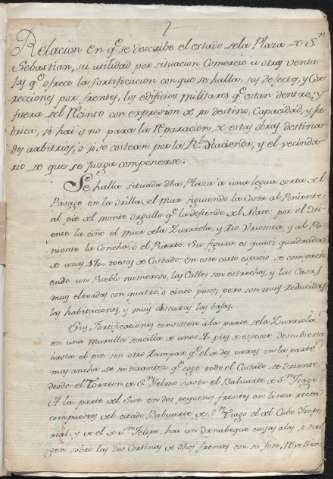 1
Relacion en q.e se describe el estado de la Plaza de S.n
Sebastian, su utilidad por situacion Comercio u otras ventajas
q.e ofrece la fortificacion con que se halla, sus defectos, y Correcciones
por frentes, los edificios militares q.e estan dentro, y
fuera del Recinto con expresion de su destino, Capacidad, y fabrica,
si hai o no para la reparacion de estas obras destinados
arbitrios, o si se costean por la R.l Hacienda, y el vecindario
de que se juzga componerse.
Se halla situada dha Plaza a una legua corta del
Pasage en la orilla del mar siguiendo la Costa al Poniente
al pie del monte orgullo q.e la defiende del Norte, por el Oriente
la ciñe el mar de la Zurriola, y Rio Urumea, y al Poniente
la Concha, o el Puerto. Su figura es quasi quadrada
de unas toesas de Costado. En este corto espacio se comprende
un Pueblo numeroso, las Calles son estrechas, y las Casas
muy elevadas con quatro, o cinco pisos, pero son muy reducidas
las habitaciones y muy obscuras las bajas.
Sus fortificaciones consisten a la parte de la Zurriola
en una muralla sencilla de unos pies de espesor descubierta
hasta el pie
muy ancha q.e coge todo el Costado de Oriente
desde el Torreon de S.n Telmo hasta el Baluarte de S.n Tiago.
A la parte del Sur en dos pequeños frentes en linea recta
compuestos del citado Baluarte de S.n Tiago el del Cubo Imperial,
y el de S.n Felipe, hai un
sobre las dos Cortinas de dhos frentes con su foso,